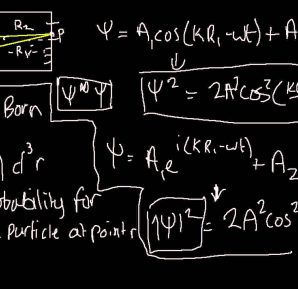 R₂
P
R₁
Ψ = A₁cos(KR₁-wt) + A
Ψ² = 2A²cos²(K
Born
Ψ*Ψ
) d³r
Ψ = A₁e^{i(KR₁-wt)} + A₂
bability for
particle at point r
|Ψ|² = 2A²cos²